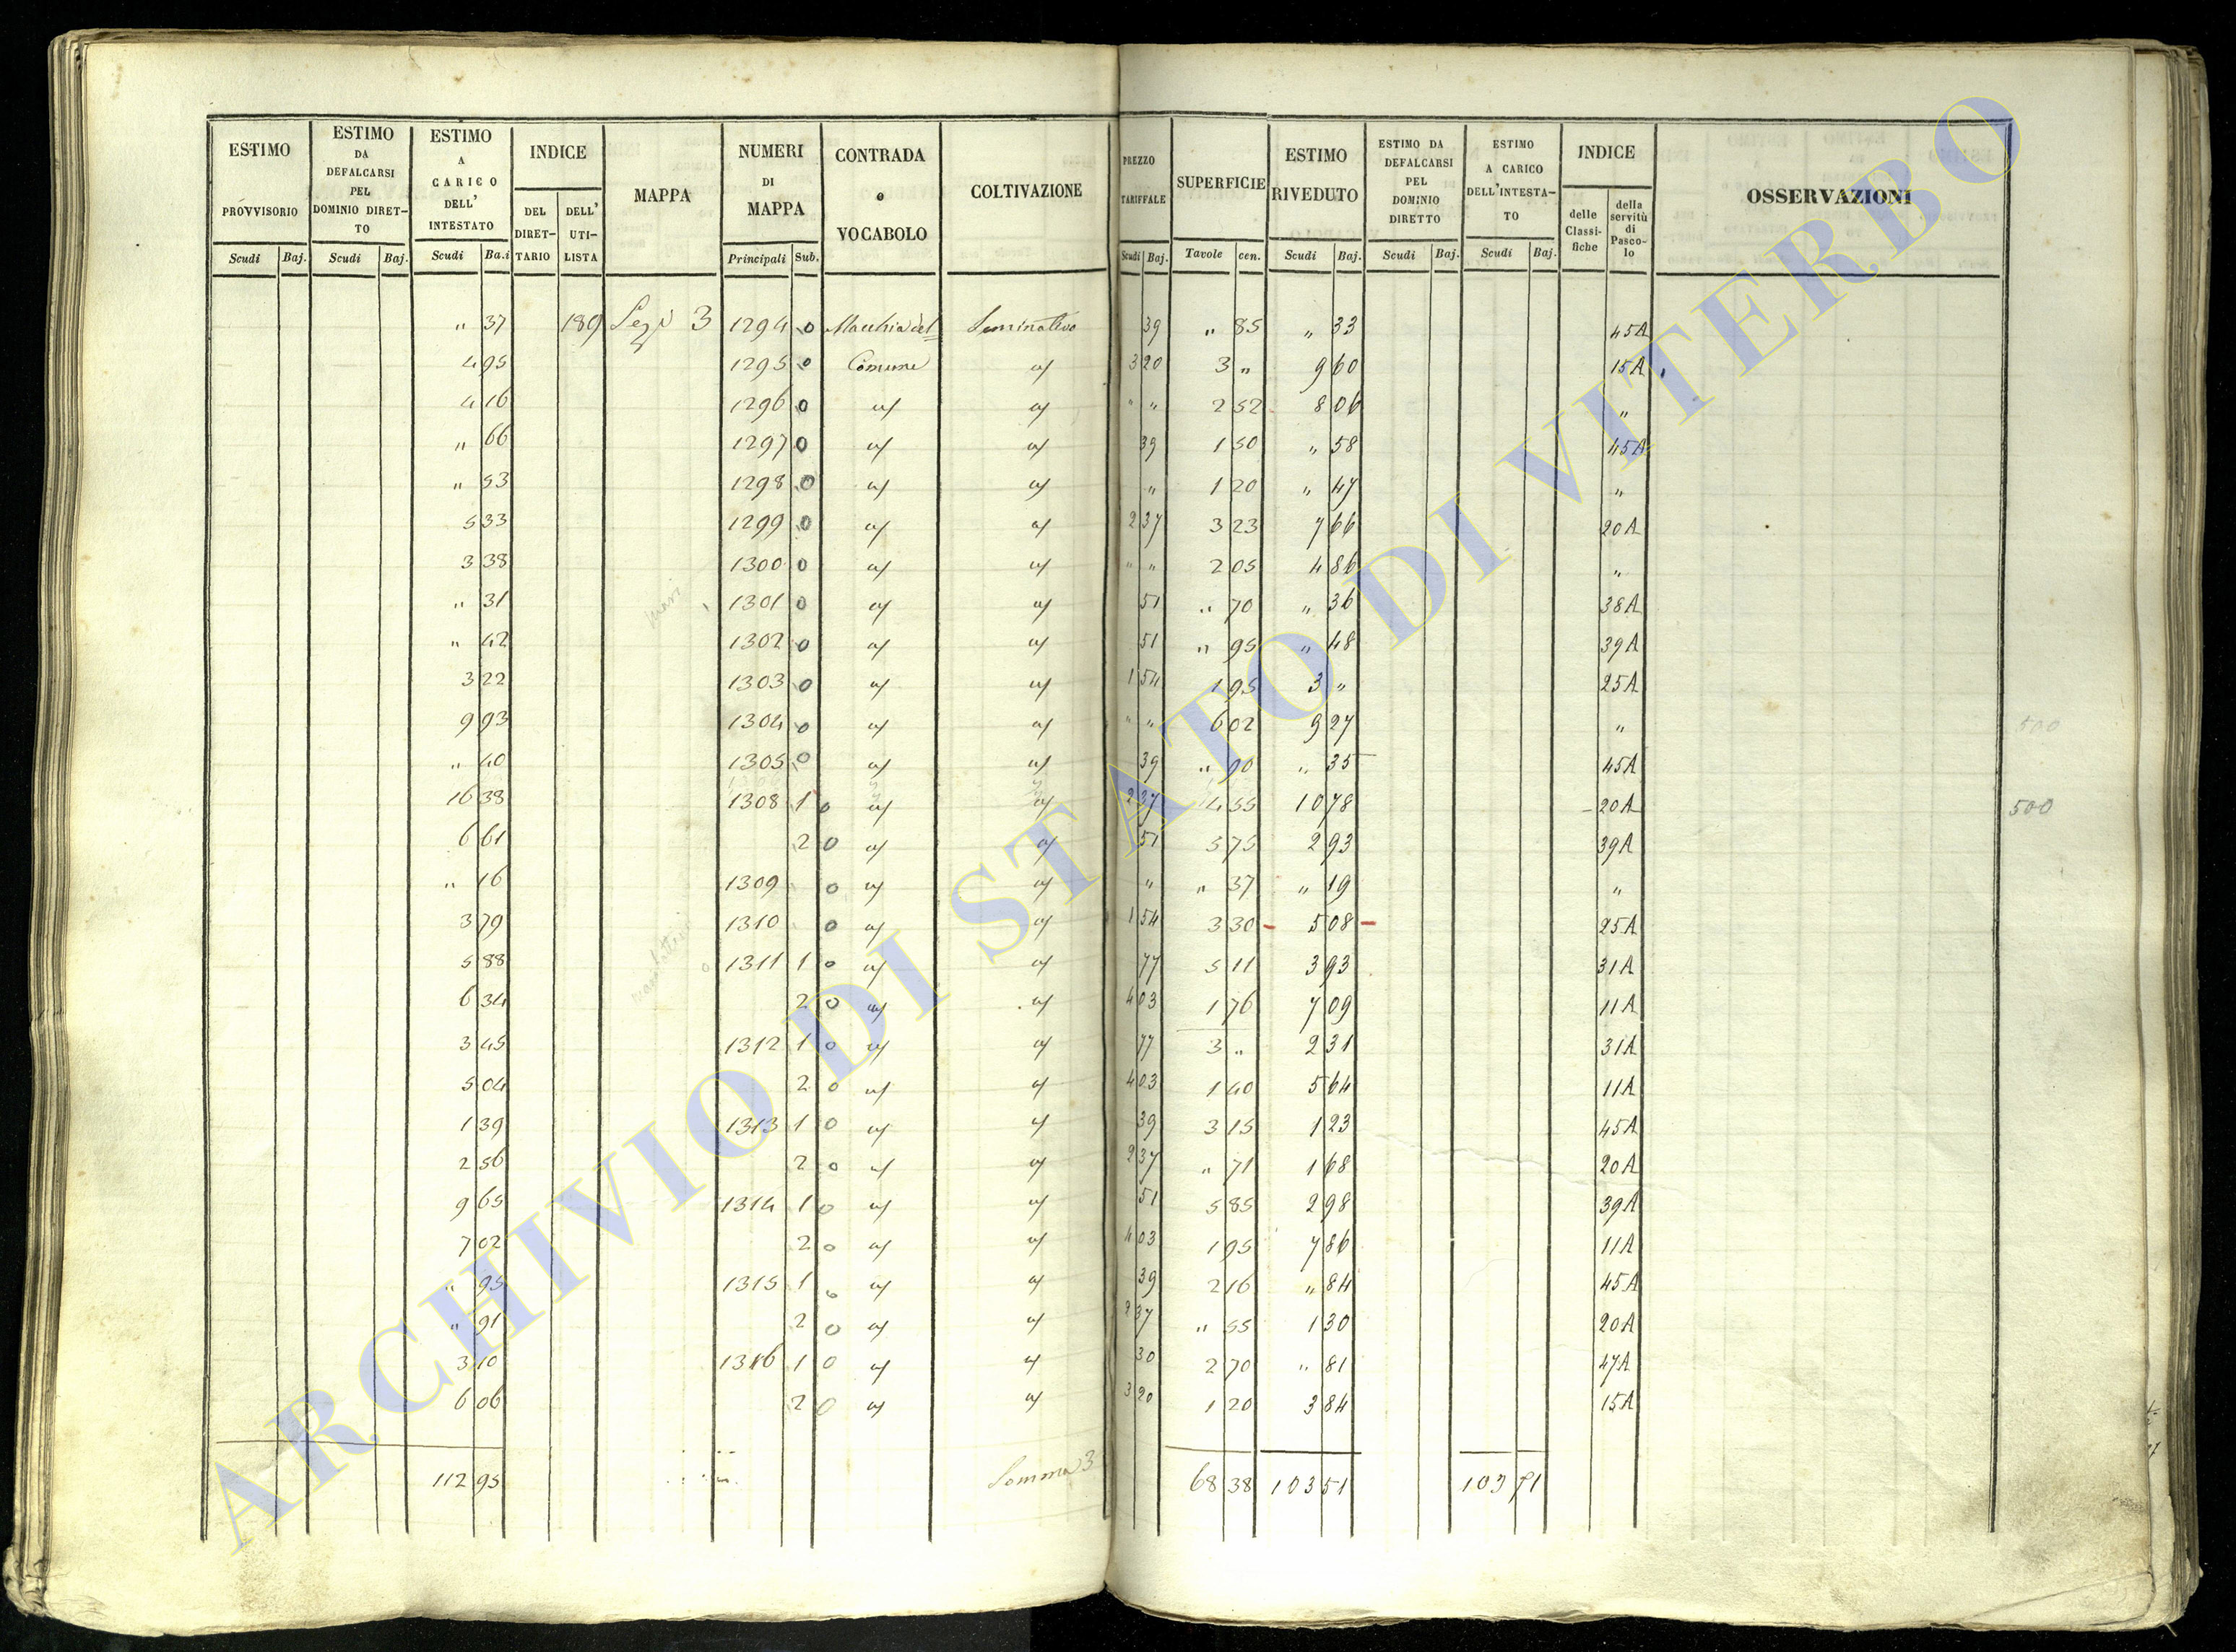 ESTIMO PROVVISORIO | ESTIMO DA DEFALCARSI PEL DOMINIO DIRETTO | ESTIMO A CARICO DELL' INTESTATO | INDICE | MAPPA | NUMERI DI MAPPA | CONTRADA o VOCABOLO | COLTIVAZIONE | PREZZO TARIFFALE | SUPERFICIE | ESTIMO RIVEDUTO | ESTIMO DA DEFALCARSI PEL DOMINIO DIRETTO | ESTIMO A CARICO DELL'INTESTATO | INDICE | OSSERVAZIONI
Scudi | Baj. | Scudi | Baj. | Scudi | Ba.i | DEL DIRETTARIO | DELL' UTILISTA | Principali | Sub. | Scudi | Baj. | Tavole | cen. | Scudi | Baj. | Scudi | Baj. | Scudi | Baj. | delle Classifiche | della servitù di Pascolo
" 37 | 189 | 3 | 1294 0 | Macchia del | Seminativo | 39 | " 85 | " 33 | 45A
4 95 | 1295 0 | Comune | a/ | 3 20 | 3 " | 9 60 | 15A
4 16 | 1296 0 | a/ | a/ | " " | 2 52 | 8 06 | "
" 66 | 1297 0 | a/ | a/ | 39 | 1 50 | " 58 | 45A
" 53 | 1298 0 | a/ | a/ | " | 1 20 | " 47 | "
5 33 | 1299 0 | a/ | a/ | 2 37 | 3 23 | 7 66 | 20A
3 38 | 1300 0 | a/ | a/ | " " | 2 05 | 4 86 | "
" 31 | 1301 0 | a/ | a/ | 51 | " 70 | " 36 | 38A
" 42 | 1302 0 | a/ | a/ | 51 | " 95 | " 48 | 39A
3 22 | 1303 0 | a/ | a/ | 1 54 | 1 95 | 3 " | 25A
9 93 | 1304 0 | a/ | a/ | " " | 6 02 | 9 27 | " | 500
" 40 | 1305 0 | a/ | a/ | 39 | " 90 | " 35 | 45A
16 38 | 1308 1 0 | a/ | a/ | 2 37 | 4 55 | 10 78 | 20A | 500
6 61 | 2 0 | a/ | a/ | 51 | 5 75 | 2 93 | 39A
" 16 | 1309 0 | a/ | a/ | " | " 37 | " 19 | "
3 79 | 1310 0 | a/ | a/ | 1 54 | 3 30 | 5 08 | 25A
5 88 | 1311 1 0 | a/ | a/ | 77 | 5 11 | 3 93 | 31A
6 34 | 2 0 | a/ | a/ | 4 03 | 1 76 | 7 09 | 11A
3 45 | 1312 1 0 | a/ | a/ | 77 | 3 " | 2 31 | 31A
5 04 | 2 0 | a/ | a/ | 4 03 | 1 40 | 5 64 | 11A
1 39 | 1313 1 0 | a/ | a/ | 39 | 3 15 | 1 23 | 45A
2 56 | 2 0 | a/ | a/ | 2 37 | " 71 | 1 68 | 20A
9 65 | 1314 1 0 | a/ | a/ | 51 | 5 85 | 2 98 | 39A
7 02 | 2 0 | a/ | a/ | 4 03 | 1 95 | 7 86 | 11A
" 95 | 1315 1 0 | a/ | a/ | 39 | 2 16 | " 84 | 45A
" 91 | 2 0 | a/ | a/ | 2 37 | " 55 | 1 30 | 20A
3 10 | 1316 1 0 | a/ | a/ | 30 | 2 70 | " 81 | 47A
6 06 | 2 0 | a/ | a/ | 3 20 | 1 20 | 3 84 | 15A
112 95 | Somma | 68 38 | 103 51
ARCHIVIO DI STATO DI VITERBO